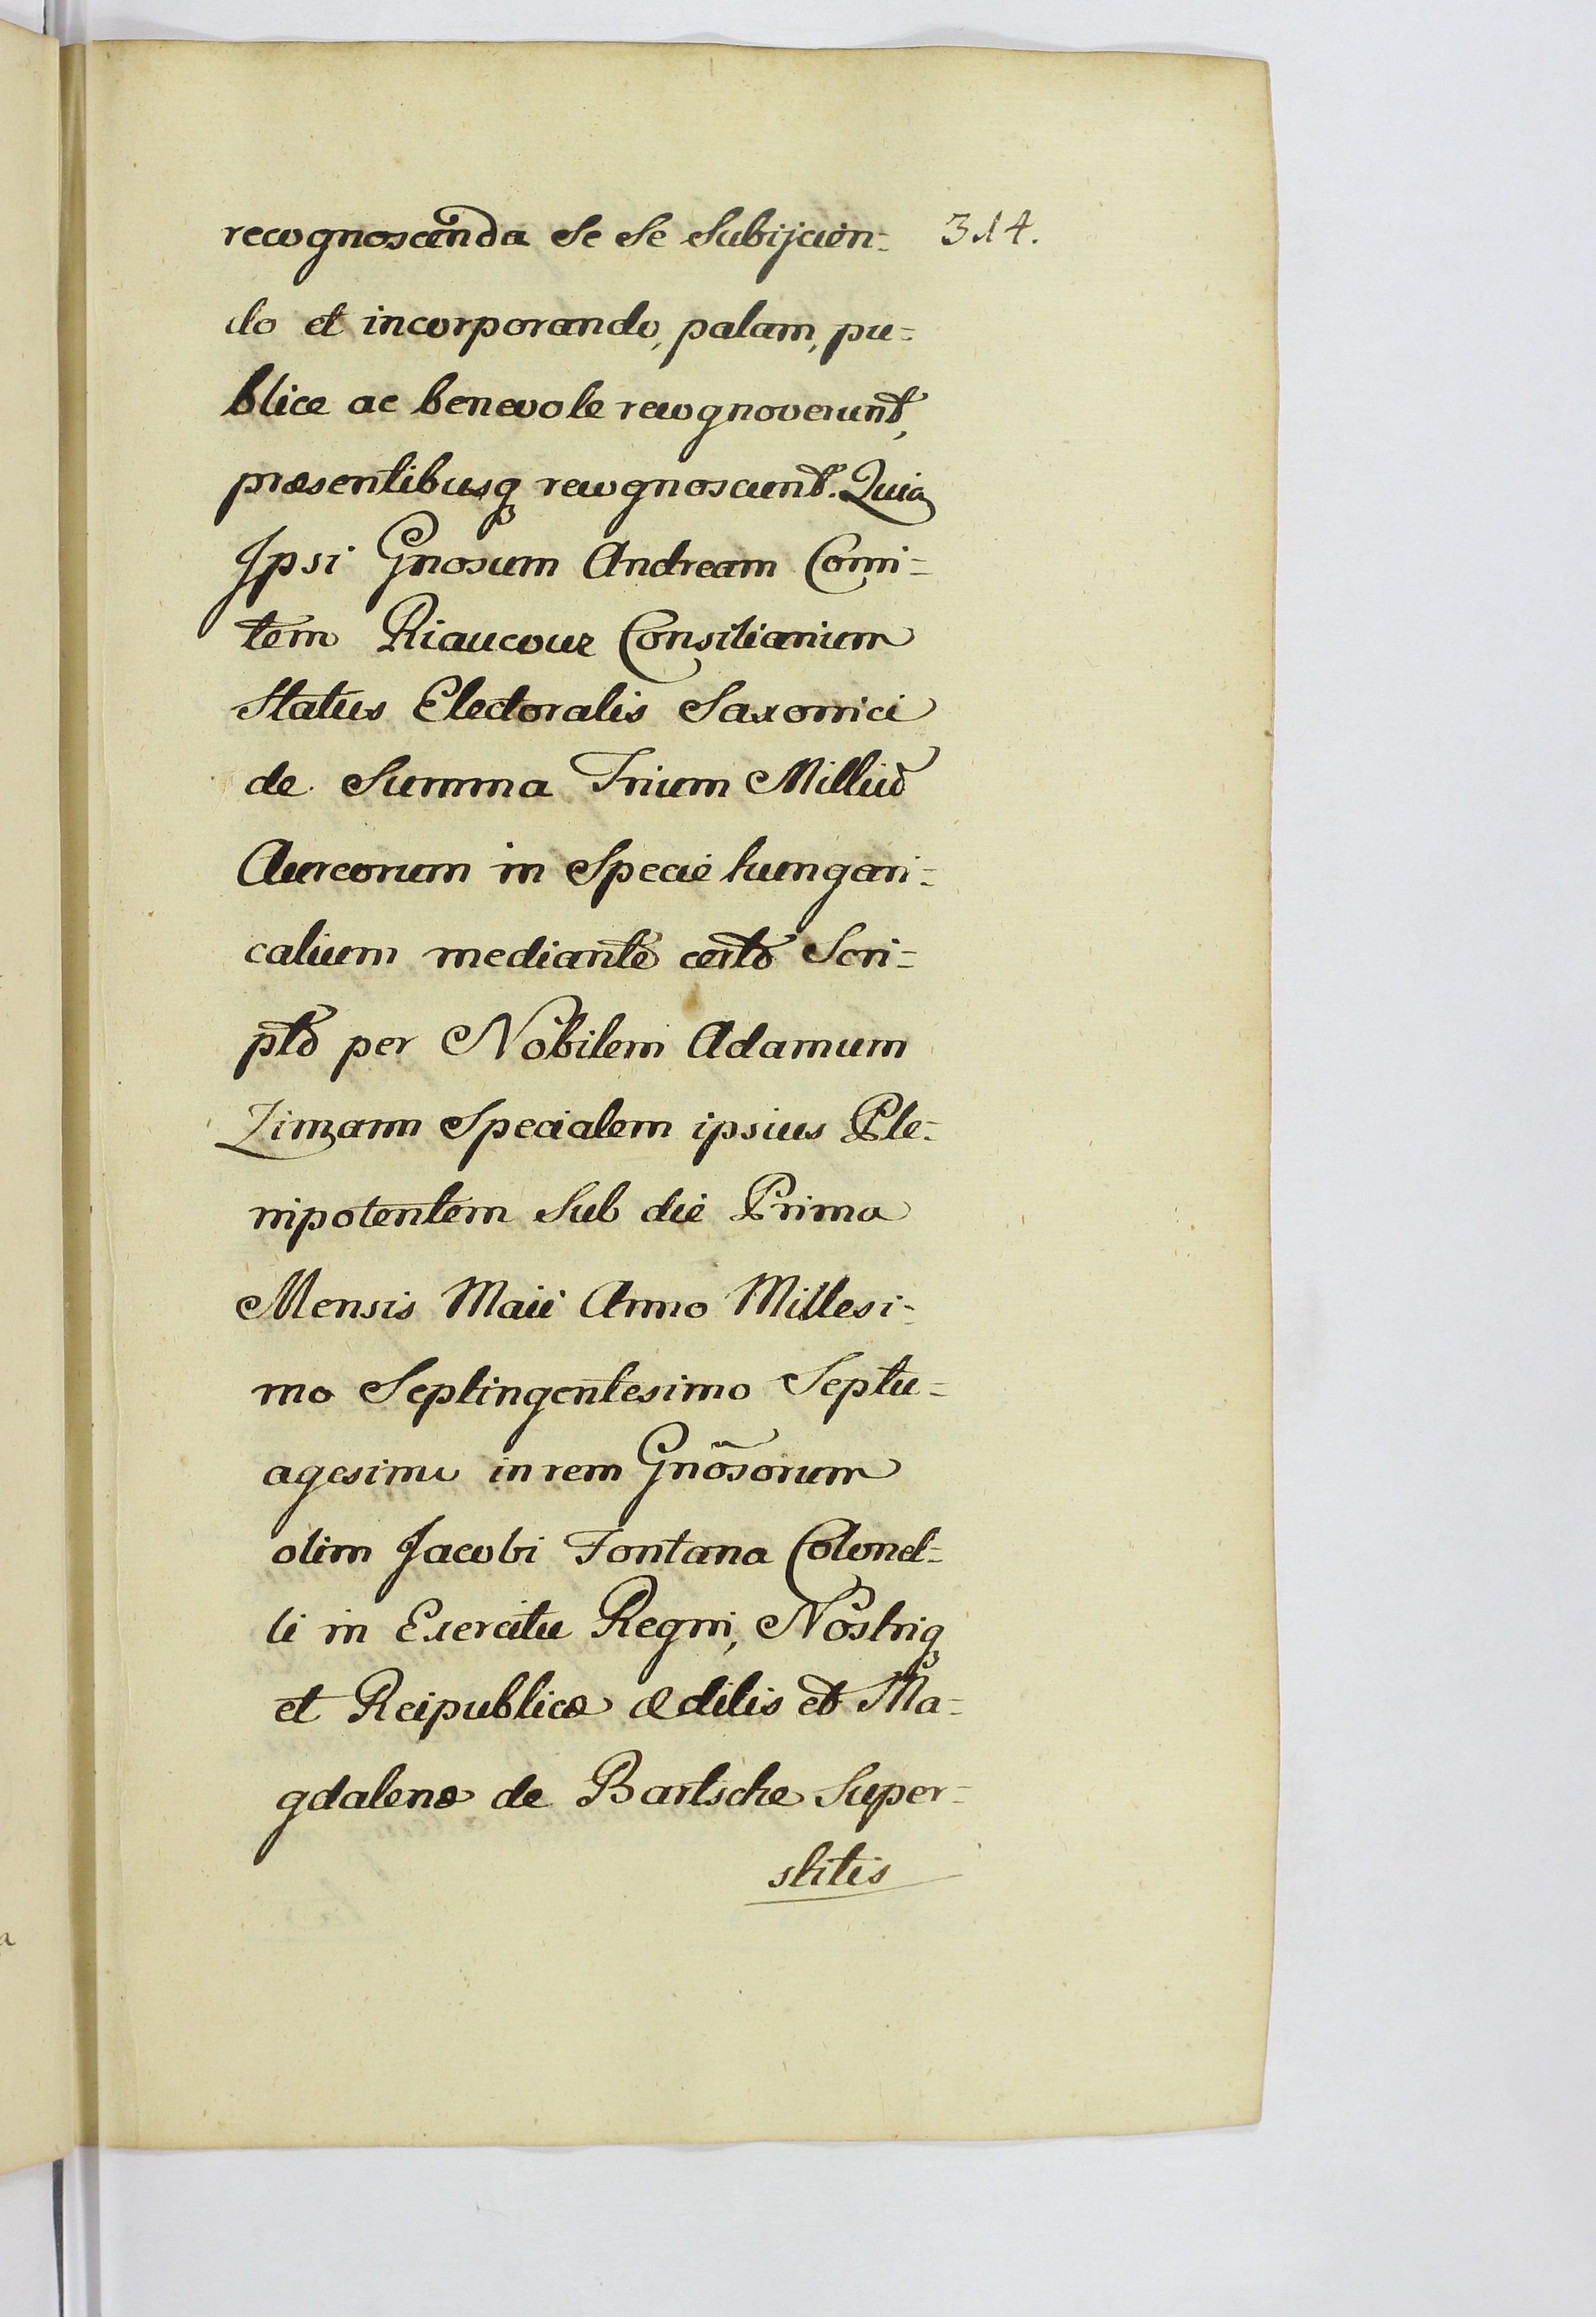 recognoscenda Se Se Subijcien= 314.
do et incorporando, palam, pu=
blice ac benevole recognoverunt,
præsentibusq recognoscunt. Quia
Ipsi Gnosum Andream Comi=
tem Riaucour Consiliarium
Status Electoralis Saxonici
de Summa Trium Milliũ
Aureorum in Specie hungari=
calium mediante certo Scri=
pto per Nobilem Adamum
Zimann Specialem ipsius Ple=
nipotentem Sub die Prima
Mensis Maii Anno Millesi=
mo Septingentesimo Septu=
agesimo in rem Gnõsorum
olim Jacobi Fontana Colonel=
li in Exercitu Regni, Nostriq
et Reipublicæ ædilis et Ma=
gdalenæ de Bartsche Super=
stitis